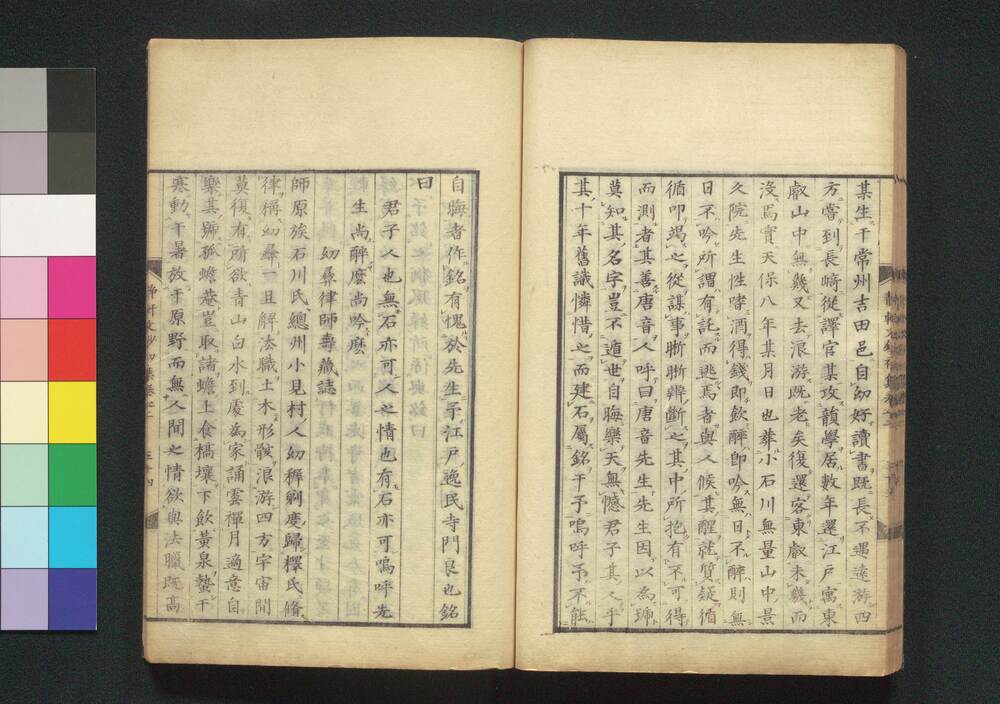 某生于常州吉田邑自幼好讀書既長不遇遠游四
方嘗到長崎從譯官某攻韻學居數年還江戸寓東
叡山中無幾又去浪游既老矣復還客東叡未幾而
沒焉實天保八年某月日也葬小石川無量山中景
久院先生性嗜酒得錢即飲醉即吟無日不醉則無
日不吟所謂有託而逃焉者與人候其醒就質疑循
循叩竭之從謀事晣晣辨斷之其中所抱有不可得
而測者其善唐音人呼曰唐音先生先生因以為號
莫知其名字豈不遁世自晦樂天無憾君子其人乎
其十年舊識憐惜之而建石屬銘于予嗚呼予不能
自晦者作銘有愧於先生予江戸逸民寺門良也銘
曰
君子人也無石亦可人之情也有石亦可嗚呼先
生尚醉麼尚吟麼
幼彛律師壽藏誌
師原族石川氏總州小見村人幼穉剃度歸釋氏脩
律稱幼彛一旦解湊職土木形骸浪游四方宇宙間
莫復有所欲青山白水到處為家誦雲禪月適意自
樂其號孤蟾菴豈取諸蟾上食槁壤下飲黃泉蟄于
寒動于暑放于原野而無人間之情欲與法臘既高
三十四